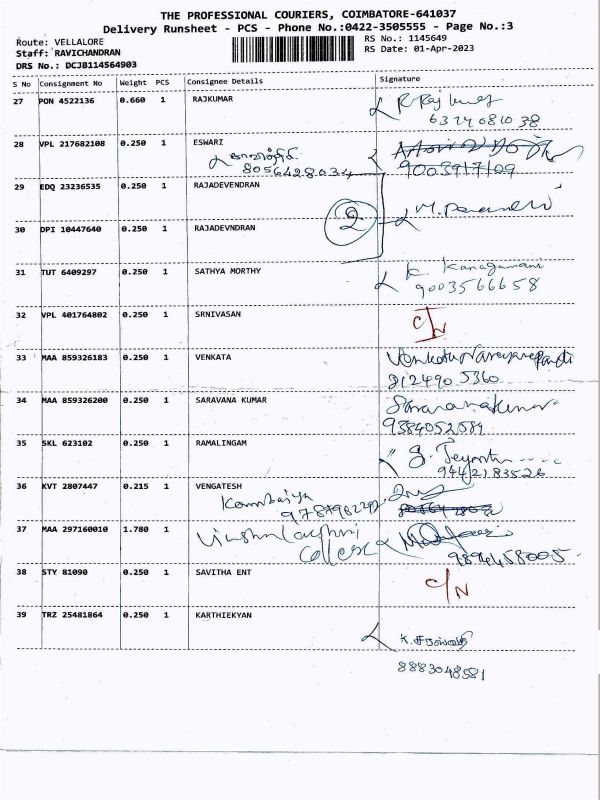 THE PROFESSIONAL COURIERS, COIMBATORE-641037
Delivery Runsheet - PCS - Phone No.:0422-3505555 - Page No.:3
Route: VELLALORE
Staff: RAVICHANDRAN
DRS No.: DCJB114564903
RS No.: 1145649
RS Date: 01-Apr-2023
S No Consignment No Weight PCS Consignee Details Signature
27 PON 4522136 0.660 1 RAJKUMAR
28 VPL 217682108 0.250 1 ESWARI
8056428034 9003917109
29 EDQ 23236535 0.250 1 RAJADEVENDRAN
2
30 DPI 10447640 0.250 1 RAJADEVNDRAN
31 TUT 6409297 0.250 1 SATHYA MORTHY K. Kanagamani
9003566658
32 VPL 401764802 0.250 1 SRNIVASAN
33 MAA 859326183 0.250 1 VENKATA
812490 5360
34 MAA 859326200 0.250 1 SARAVANA KUMAR Saravanakumar
9384052584
35 SKL 623102 0.250 1 RAMALINGAM
9442183526
36 KVT 2807447 0.215 1 VENGATESH
37 MAA 297160010 1.780 1
College
9894458005
38 STY 81090 0.250 1 SAVITHA ENT C/N
39 TRZ 25481864 0.250 1 KARTHIEKYAN
8883048581